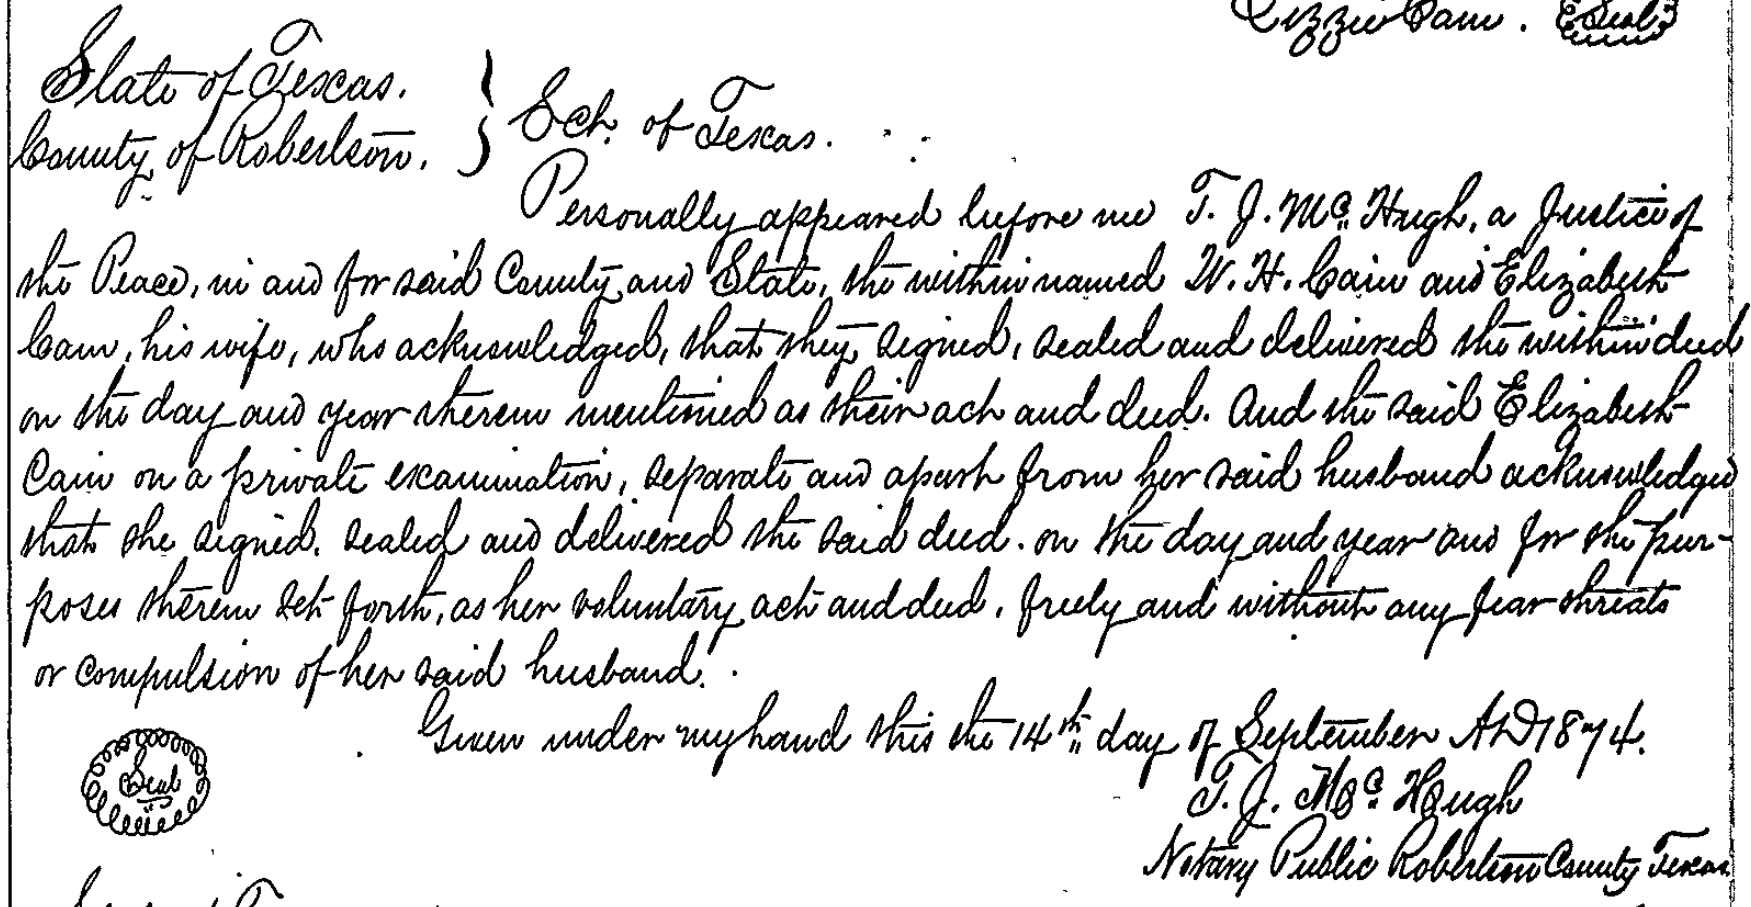 Lizzie Cain. Seal
State of Texas.
County of Robertson. } Sch. of Texas.
Personally appeared before me T. J. McHugh, a Justice of
the Peace, in and for said County and State, the within named W. H. Cain and Elizabeth
Cain, his wife, who acknowledged, that they signed, sealed and delivered the within deed
on the day and year therein mentioned as their act and deed. And the said Elizabeth
Cain on a private examination, separate and apart from her said husband acknowledged
that she signed, sealed and delivered the said deed. on the day and year and for the pur-
poses therein set forth, as her voluntary act and deed, freely and without any fear threats
or compulsion of her said husband.
Given under my hand this the 14th day of September AD 1874.
Seal
T. J. McHough
Notary Public Robertson County Texas